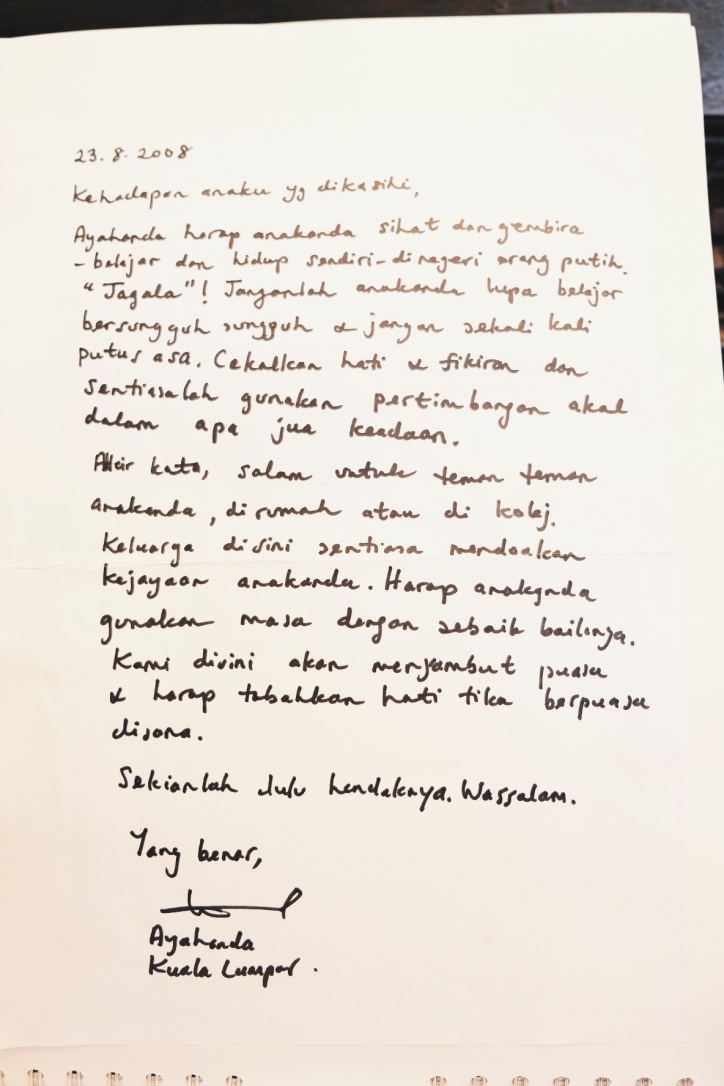 23.8.2008
Kehadapan anaku yg dikasihi,
Ayahanda harap anakanda sihat dan gembira
- belajar dan hidup sendiri - di negeri orang putih.
"Jagala"! Janganlah anakanda lupa belajar
bersungguh sungguh & jangan sekali kali
putus asa. Cekalkan hati & fikiran dan
sentiasalah gunakan pertimbangan akal
dalam apa jua keadaan.
Akhir kata, salam untuk teman teman
anakanda, dirumah atau di kolej.
Keluarga disini sentiasa mendoakan
kejayaan anakanda. Harap anakanda
gunakan masa dengan sebaik baiknya.
Kami disini akan menyambut puasa
& harap tabahkan hati tika berpuasa
disana.
Sekianlah dulu hendaknya. Wassalam.
Yang benar,
Ayahanda
Kuala Lumpur.